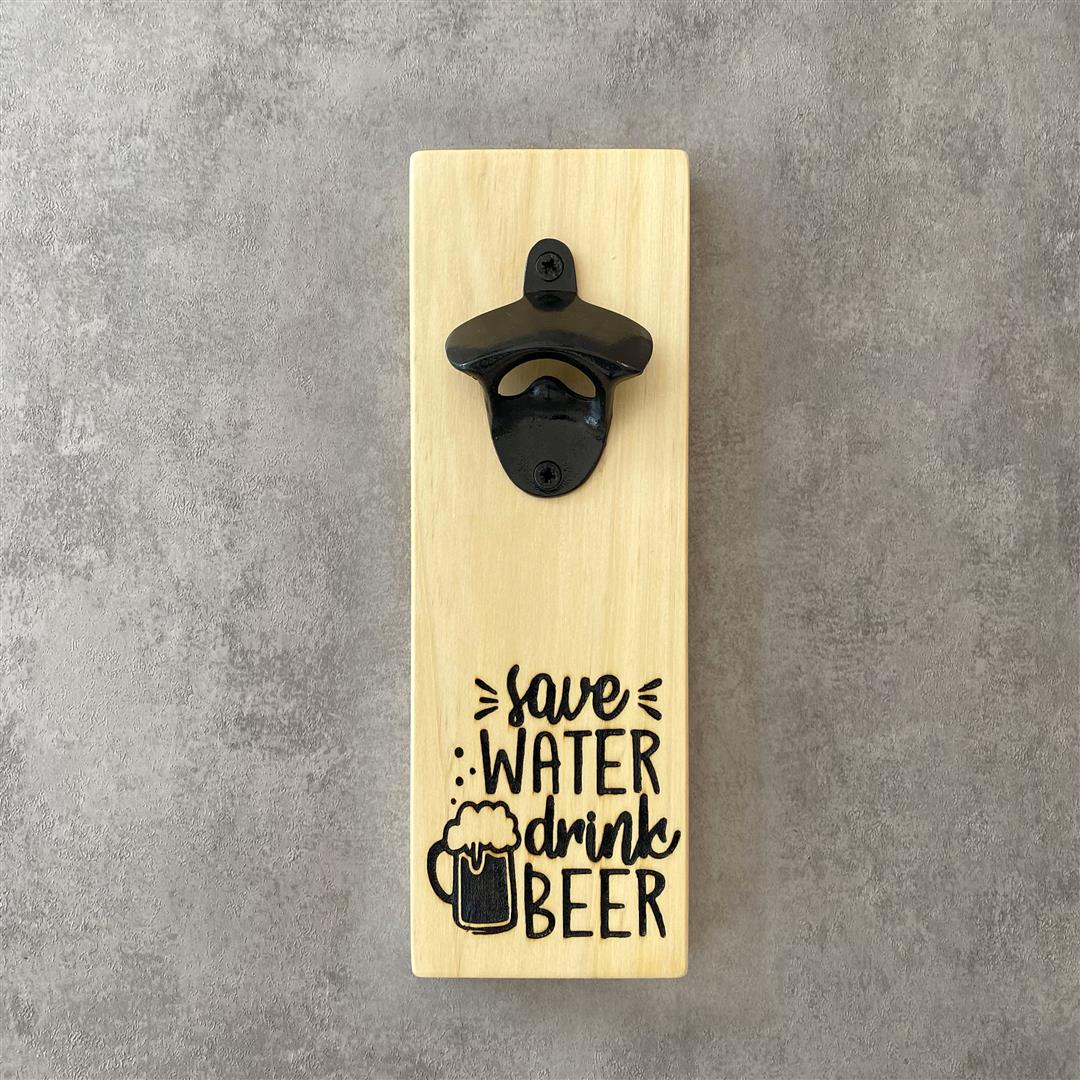 save
WATER
drink
BEER